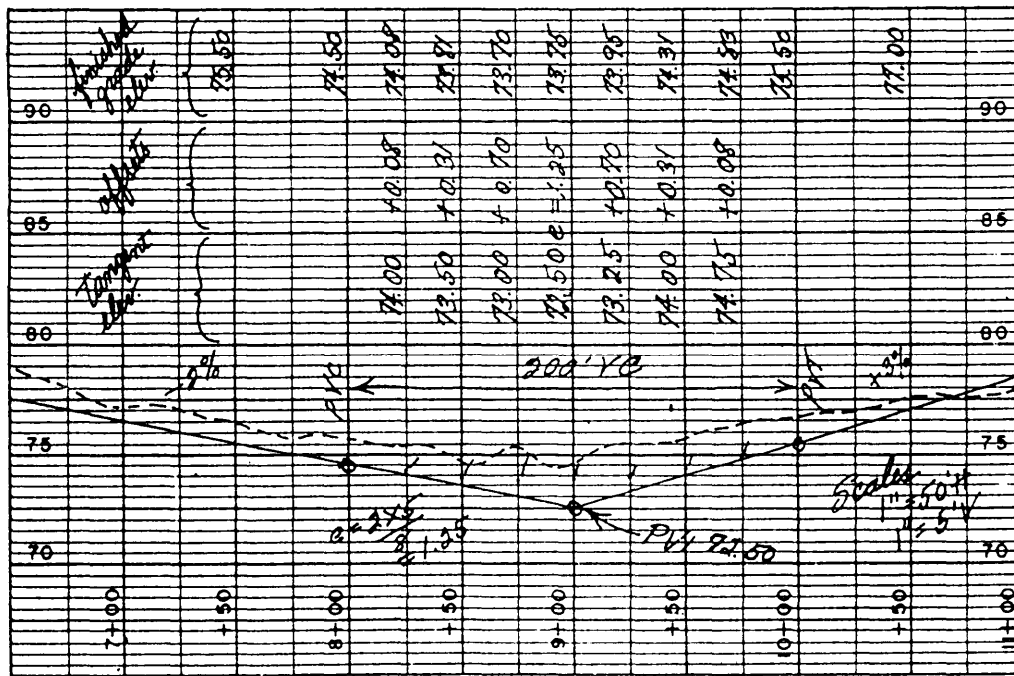 finished grade elev.
75.50
74.50
74.08
73.81
73.70
73.75
73.95
74.31
74.83
75.50
77.00
90
90
offsets
+0.08
+0.31
+0.70
e=1.25
+0.70
+0.31
+0.08
85
85
Tangent elev.
74.00
73.50
73.00
72.50
73.25
74.00
74.75
80
80
-2%
PVC
200' VC
PVT
+3%
75
75
e = 2×5
8
= 1.25
PVI 72.50
Scales
1" = 50' H
1" = 5' V
70
70
7+00
+50
8+00
+50
9+00
+50
10+00
+50
11+00